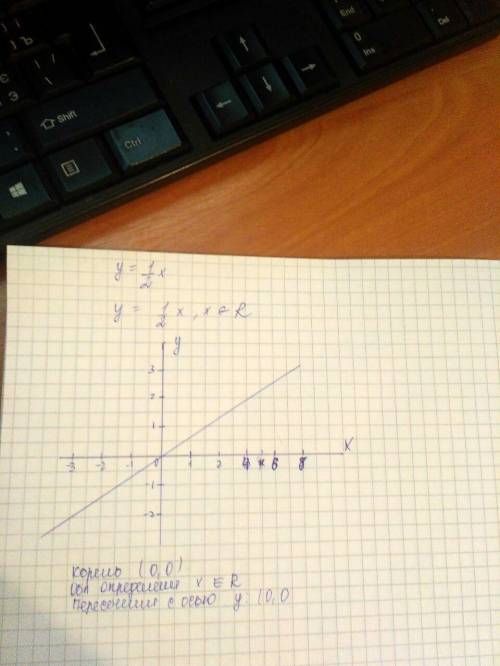 End
0
Ins
Del
Shift
Ctrl
Э
Ъ
y = 1/2 x
y = 1/2 x, x ∈ R
y
3
2
1
X
-3 -2 -1 0 1 2 4 6 8
-1
-2
Корень (0,0)
обл определения x ∈ R
Пересечения с осью y (0,0